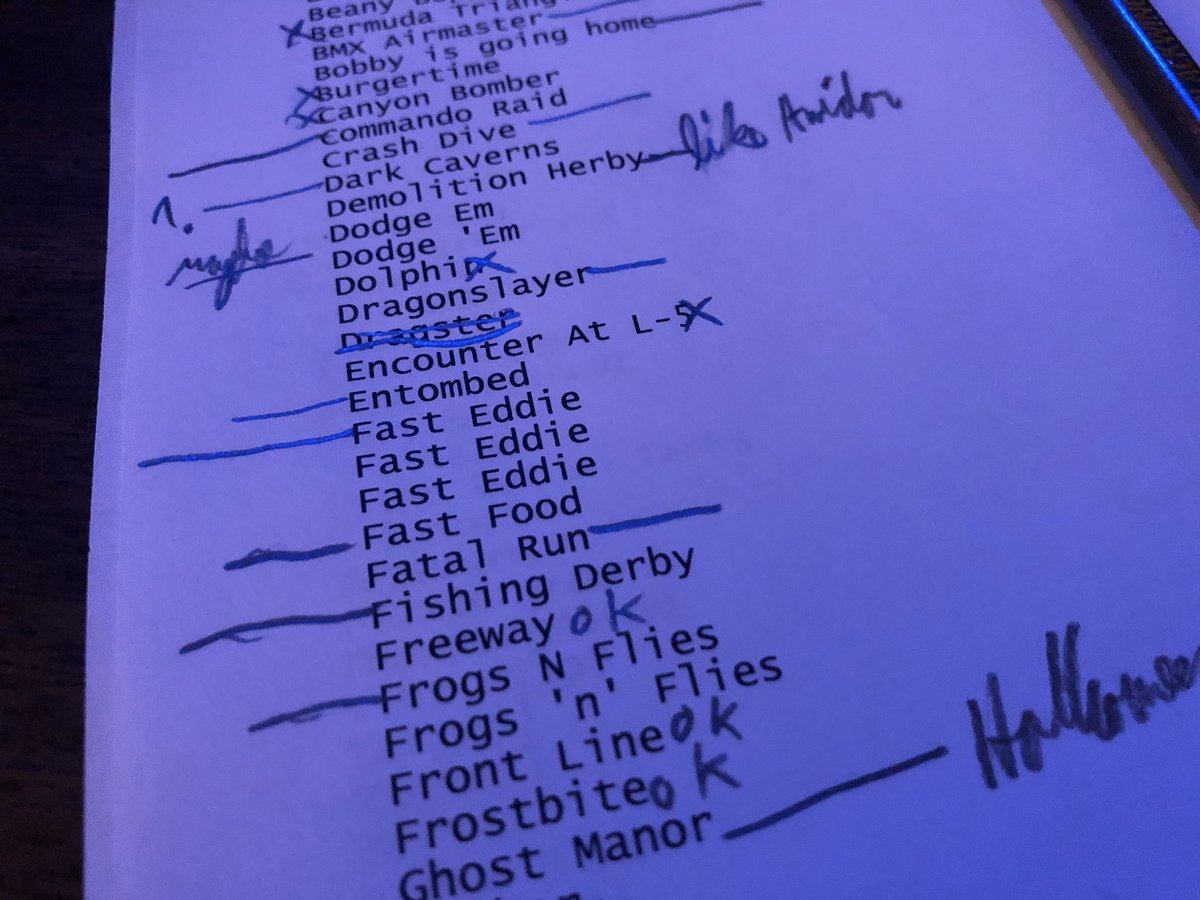 Beany
Bermuda Triang
BMX Airmaster
Bobby is going home
Burgertime
Canyon Bomber
Commando Raid
Crash Dive
Dark Caverns
1. Demolition Herby like Amidar
Dodge Em
maybe Dodge 'Em
Dolphin
Dragonslayer
Dragster
Encounter At L-5
Entombed
Fast Eddie
Fast Eddie
Fast Eddie
Fast Food
Fatal Run
Fishing Derby
Freeway ok
Frogs N Flies
Frogs 'n' Flies
Front Line ok
Frostbite ok
Ghost Manor Hallowee